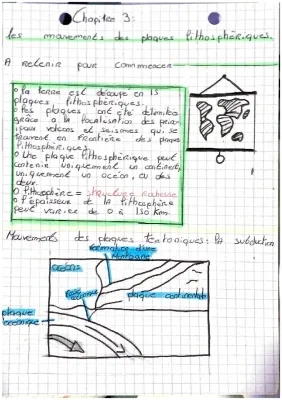 Chapitre 3:
les mouvements des plaques lithosphériques.
A retenir pour commencer
o la terre est découpé en 15
plaques lithosphériques.
o Les plaques ont été délimitées
grâce à la localisation des
volcans et séismes qui se
trouvent en frontière des plaques
lithosphériques.
o Une plaque lithosphérique peut
contenir uniquement un continent,
uniquement un océan, ou des
deux.
o lithosphère = structure rocheuse
o l'épaisseur de la lithosphère
peut varier de 0 à 150 km.
Mouvements des plaques tectoniques: la subduction
formation d'une
Montagne
océan
fosse
océanique
plaque continentale
plaque
océanique